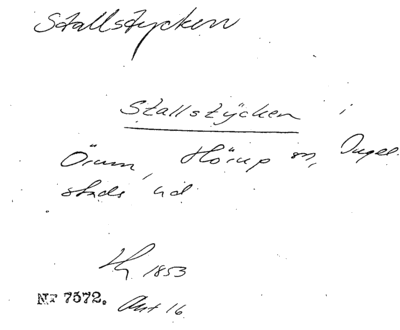 Stallstycken
Stallstycken i
Örum, Hörup sn, Ingel-
stads hd
1853
Nr 7572. Akt 16